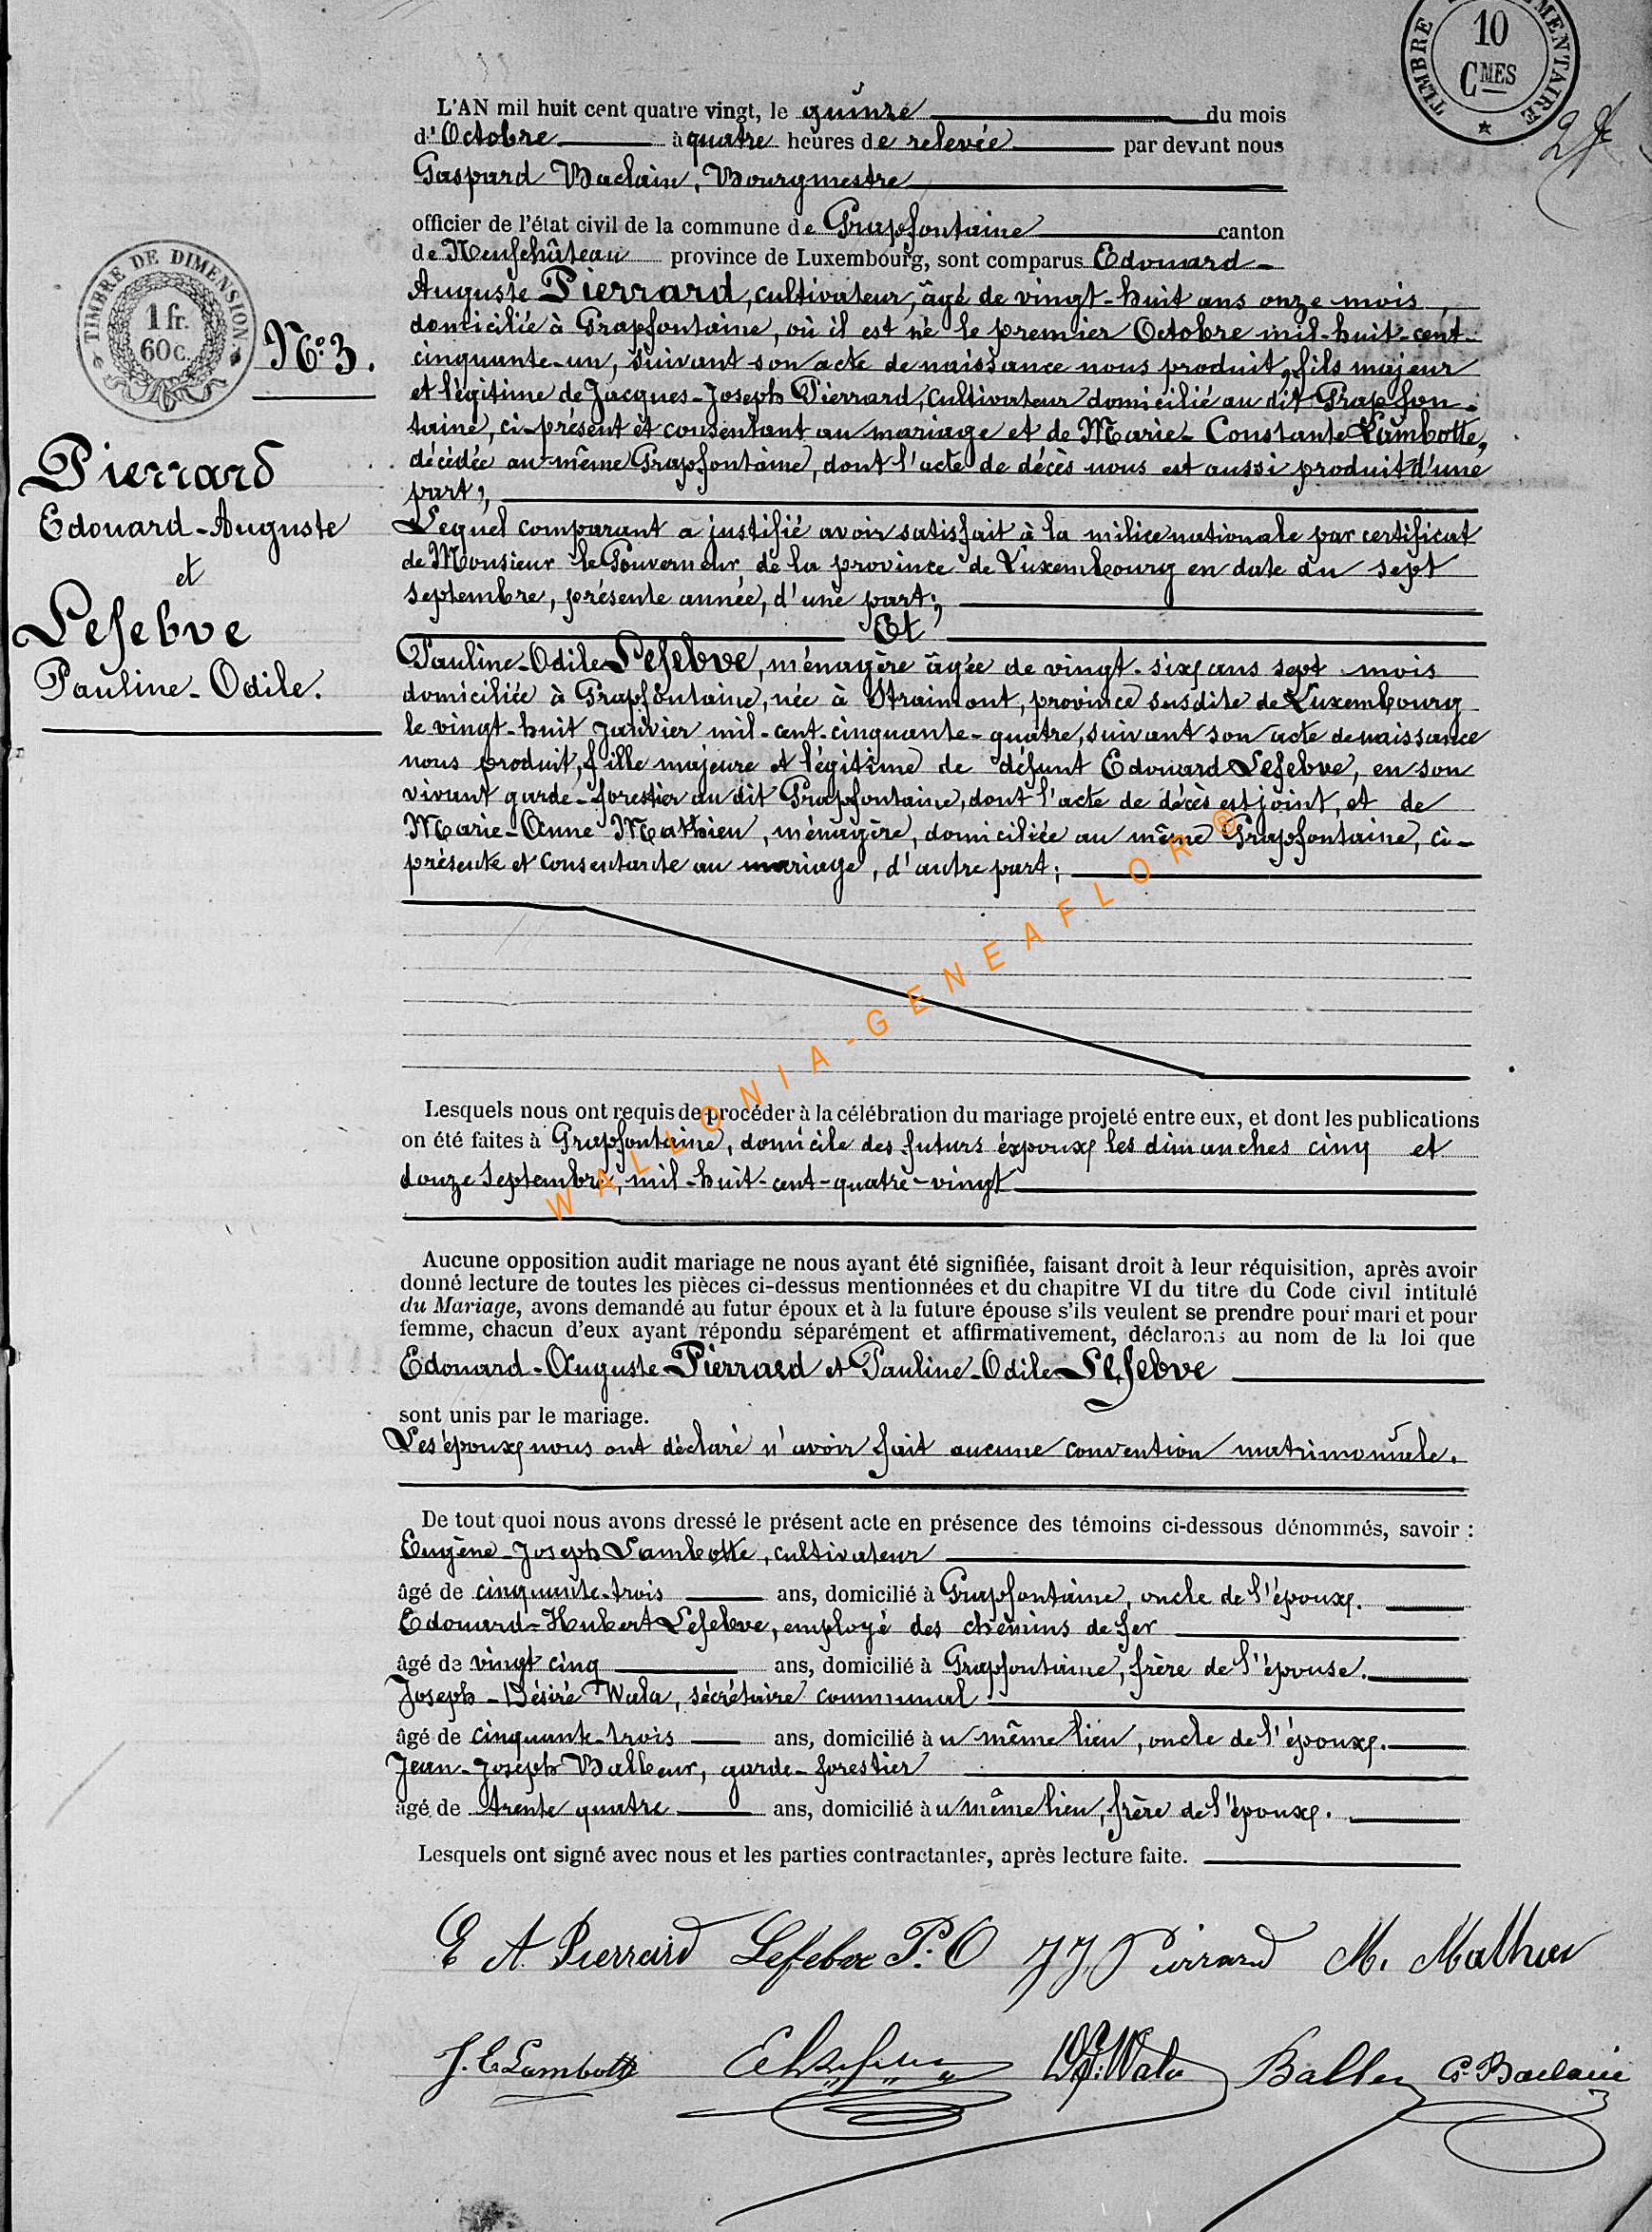 TIMBRE
10
CMES
L'AN mil huit cent quatre vingt, le quinze du mois
d'Octobre à quatre heures de relevée par devant nous
Gaspard Baclain, Bourgmestre
officier de l'état civil de la commune de Grapfontaine canton
de Neufchâteau province de Luxembourg, sont comparus Edouard-
Auguste Pierrard, cultivateur, âgé de vingt-huit ans onze mois
TIMBRE DE DIMENSION.
1 fr.
60 c.
No. 3.
domicilié à Grapfontaine, où il est né le premier Octobre mil-huit-cent-
cinquante-un, suivant son acte de naissance nous produit, fils majeur
et légitime de Jacques-Joseph Pierrard, cultivateur domicilié au dit Grapfon-
taine, ci-présent et consentant au mariage et de Marie-Constante Lambotte,
décédée au même Grapfontaine, dont l'acte de décès nous est aussi produit d'une
part;
Pierrard
Edouard-Auguste
et
Lefebve
Pauline-Odile.
Lequel comparant a justifié avoir satisfait à la milice nationale par certificat
de Monsieur le Gouverneur de la province de Luxembourg en date du sept
septembre, présente année, d'une part;
Et
Pauline-Odile Lefebve, ménagère âgée de vingt-six ans sept mois
domiciliée à Grapfontaine, née à Straimont, province susdite de Luxembourg
le vingt-huit janvier mil-cent-cinquante-quatre, suivant son acte de naissance
nous produit, fille majeure et légitime de défunt Edouard Lefebve, en son
vivant garde-forestier au dit Grapfontaine, dont l'acte de décès est joint, et de
Marie-Anne Mathieu, ménagère, domiciliée au même Grapfontaine, ci-
présente et consentante au mariage, d'autre part;
WALLONIA-GENEAFLOR ®
Lesquels nous ont requis de procéder à la célébration du mariage projeté entre eux, et dont les publications
on été faites à Grapfontaine, domicile des futurs époux les dimanches cinq et
douze Septembre, mil-huit-cent-quatre-vingt
Aucune opposition audit mariage ne nous ayant été signifiée, faisant droit à leur réquisition, après avoir
donné lecture de toutes les pièces ci-dessus mentionnées et du chapitre VI du titre du Code civil intitulé
du Mariage, avons demandé au futur époux et à la future épouse s'ils veulent se prendre pour mari et pour
femme, chacun d'eux ayant répondu séparément et affirmativement, déclarons au nom de la loi que
Edouard-Auguste Pierrard et Pauline-Odile Lefebve
sont unis par le mariage.
Les époux nous ont déclaré n'avoir fait aucune convention matrimoniale.
De tout quoi nous avons dressé le présent acte en présence des témoins ci-dessous dénommés, savoir :
Eugène-Joseph Lambotte, cultivateur
âgé de cinquante-trois ans, domicilié à Grapfontaine, oncle de l'époux.
Edouard-Hubert Lefebve, employé des chemins de fer
âgé de vingt cinq ans, domicilié à Grapfontaine, frère de l'épouse.
Joseph-Désiré Wala, sécrétaire communal
âgé de cinquante-trois ans, domicilié à u même lieu, oncle de l'époux.
Jean-Joseph Balleur, garde-forestier
âgé de trente quatre ans, domicilié à u même lieu, frère de l'époux.
Lesquels ont signé avec nous et les parties contractantes, après lecture faite.
E A Pierrard Lefebve P. O J J Pierrard M. Mathieu
J. E Lambotte Wala Balleur G. Baclain